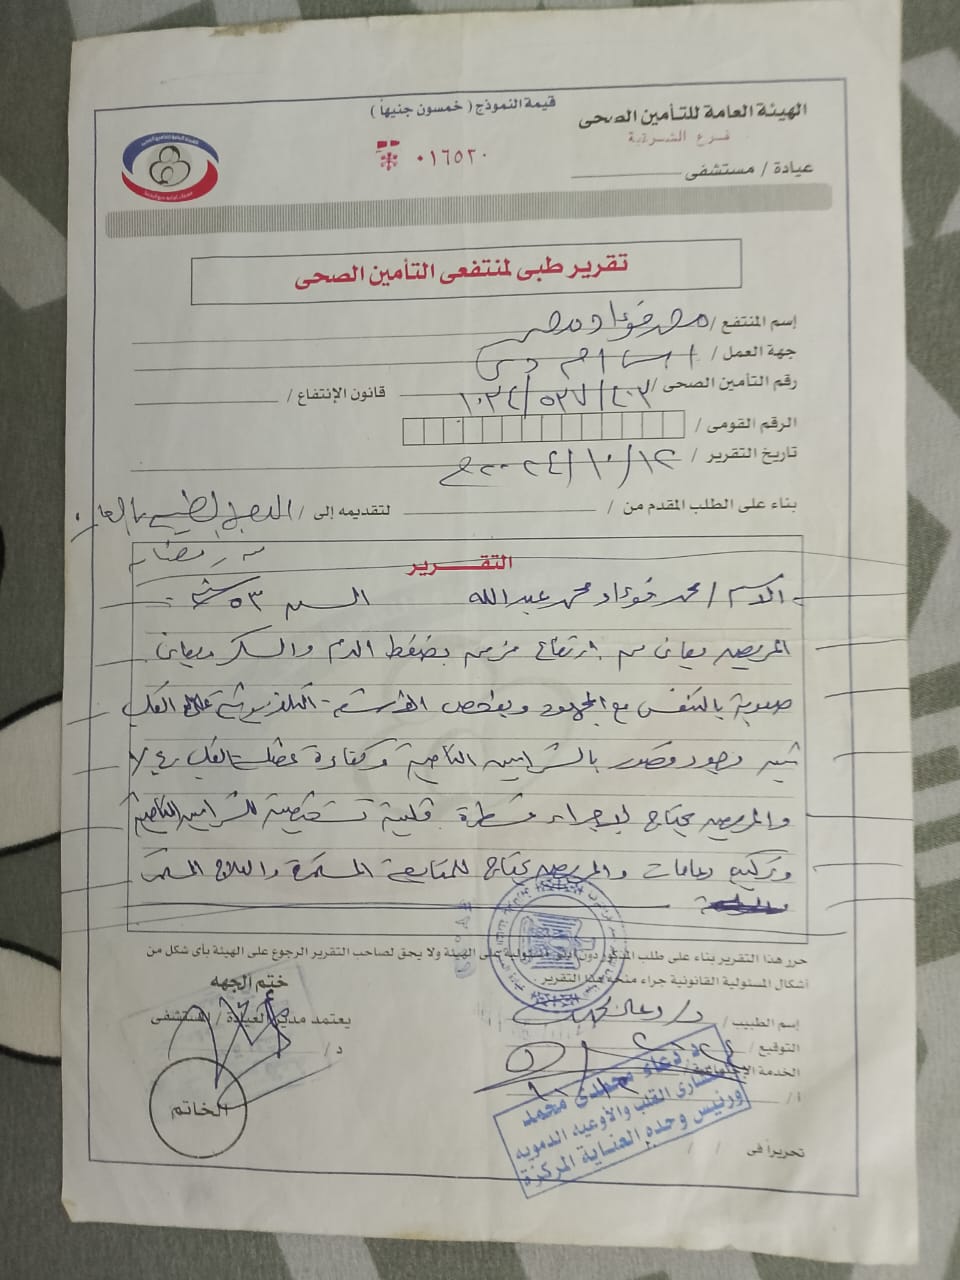 الهيئة العامة للتأمين الصحى
فرع الشرقية
عيادة / مستشفى
قيمة النموذج ( خمسون جنيهاً )
٠١٦٥٢٠
تقرير طبى لمنتفعى التأمين الصحى
إسم المنتفع / محمد فؤاد محمد
جهة العمل /
رقم التأمين الصحى / قانون الإنتفاع /
الرقم القومى /
تاريخ التقرير / ١٢/١٠/٢٠٢٤ م
بناء على الطلب المقدم من / لتقديمه إلى /
التقـــــرير
الاسم / محمد فؤاد محمد عبدالله السن ٥٣ سنة
المريض يعانى من ارتفاع مزمن بضغط الدم والسكر ويعانى
صعوبة بالتنفس مع المجهود وبفحص الأشعة التلفزيونية على القلب
تبين وجود قصور بالشرايين التاجية وكفاءة عضلة القلب
والمريض يحتاج لإجراء قسطرة قلبية تشخيصية للشرايين التاجية
وتركيب دعامات والمريض يحتاج للمتابعة المستمرة والعلاج المستمر
حرر هذا التقرير بناء على طلب المذكور دون أدنى مسئولية على الهيئة ولا يحق لصاحب التقرير الرجوع على الهيئة بأى شكل من
أشكال المسئولية القانونية جراء منحه هذا التقرير .
ختم الجهه
إسم الطبيب /
يعتمد مدير العيادة / المستشفى
التوقيع /
د /
الخدمة الإجتماعية /
أ /
الخاتم
تحريراً فى / /
د دعاء محمدى محمد
إستشارى القلب والأوعيه الدمويه
ورئيس وحده العناية المركزة